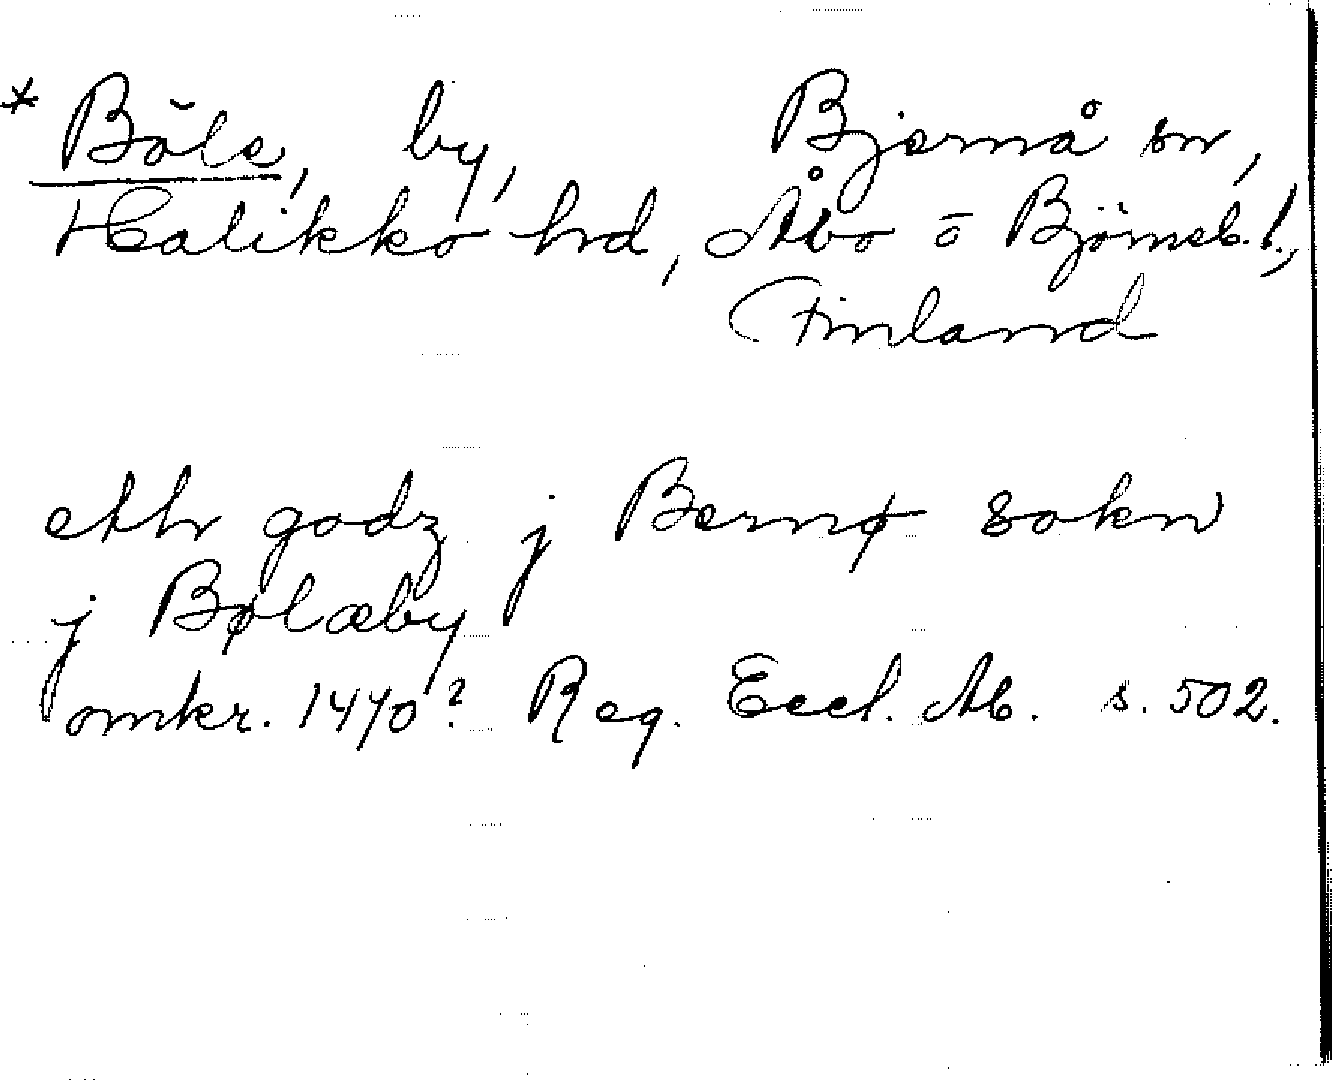 * Böle, by, Bjernå sn,
Halikko hd, Åbo o Björneb. l.,
Finland
etth godz j Bernø sokn
j Bølæby
omkr. 1470? Reg. Eccl. Ab. s. 502.